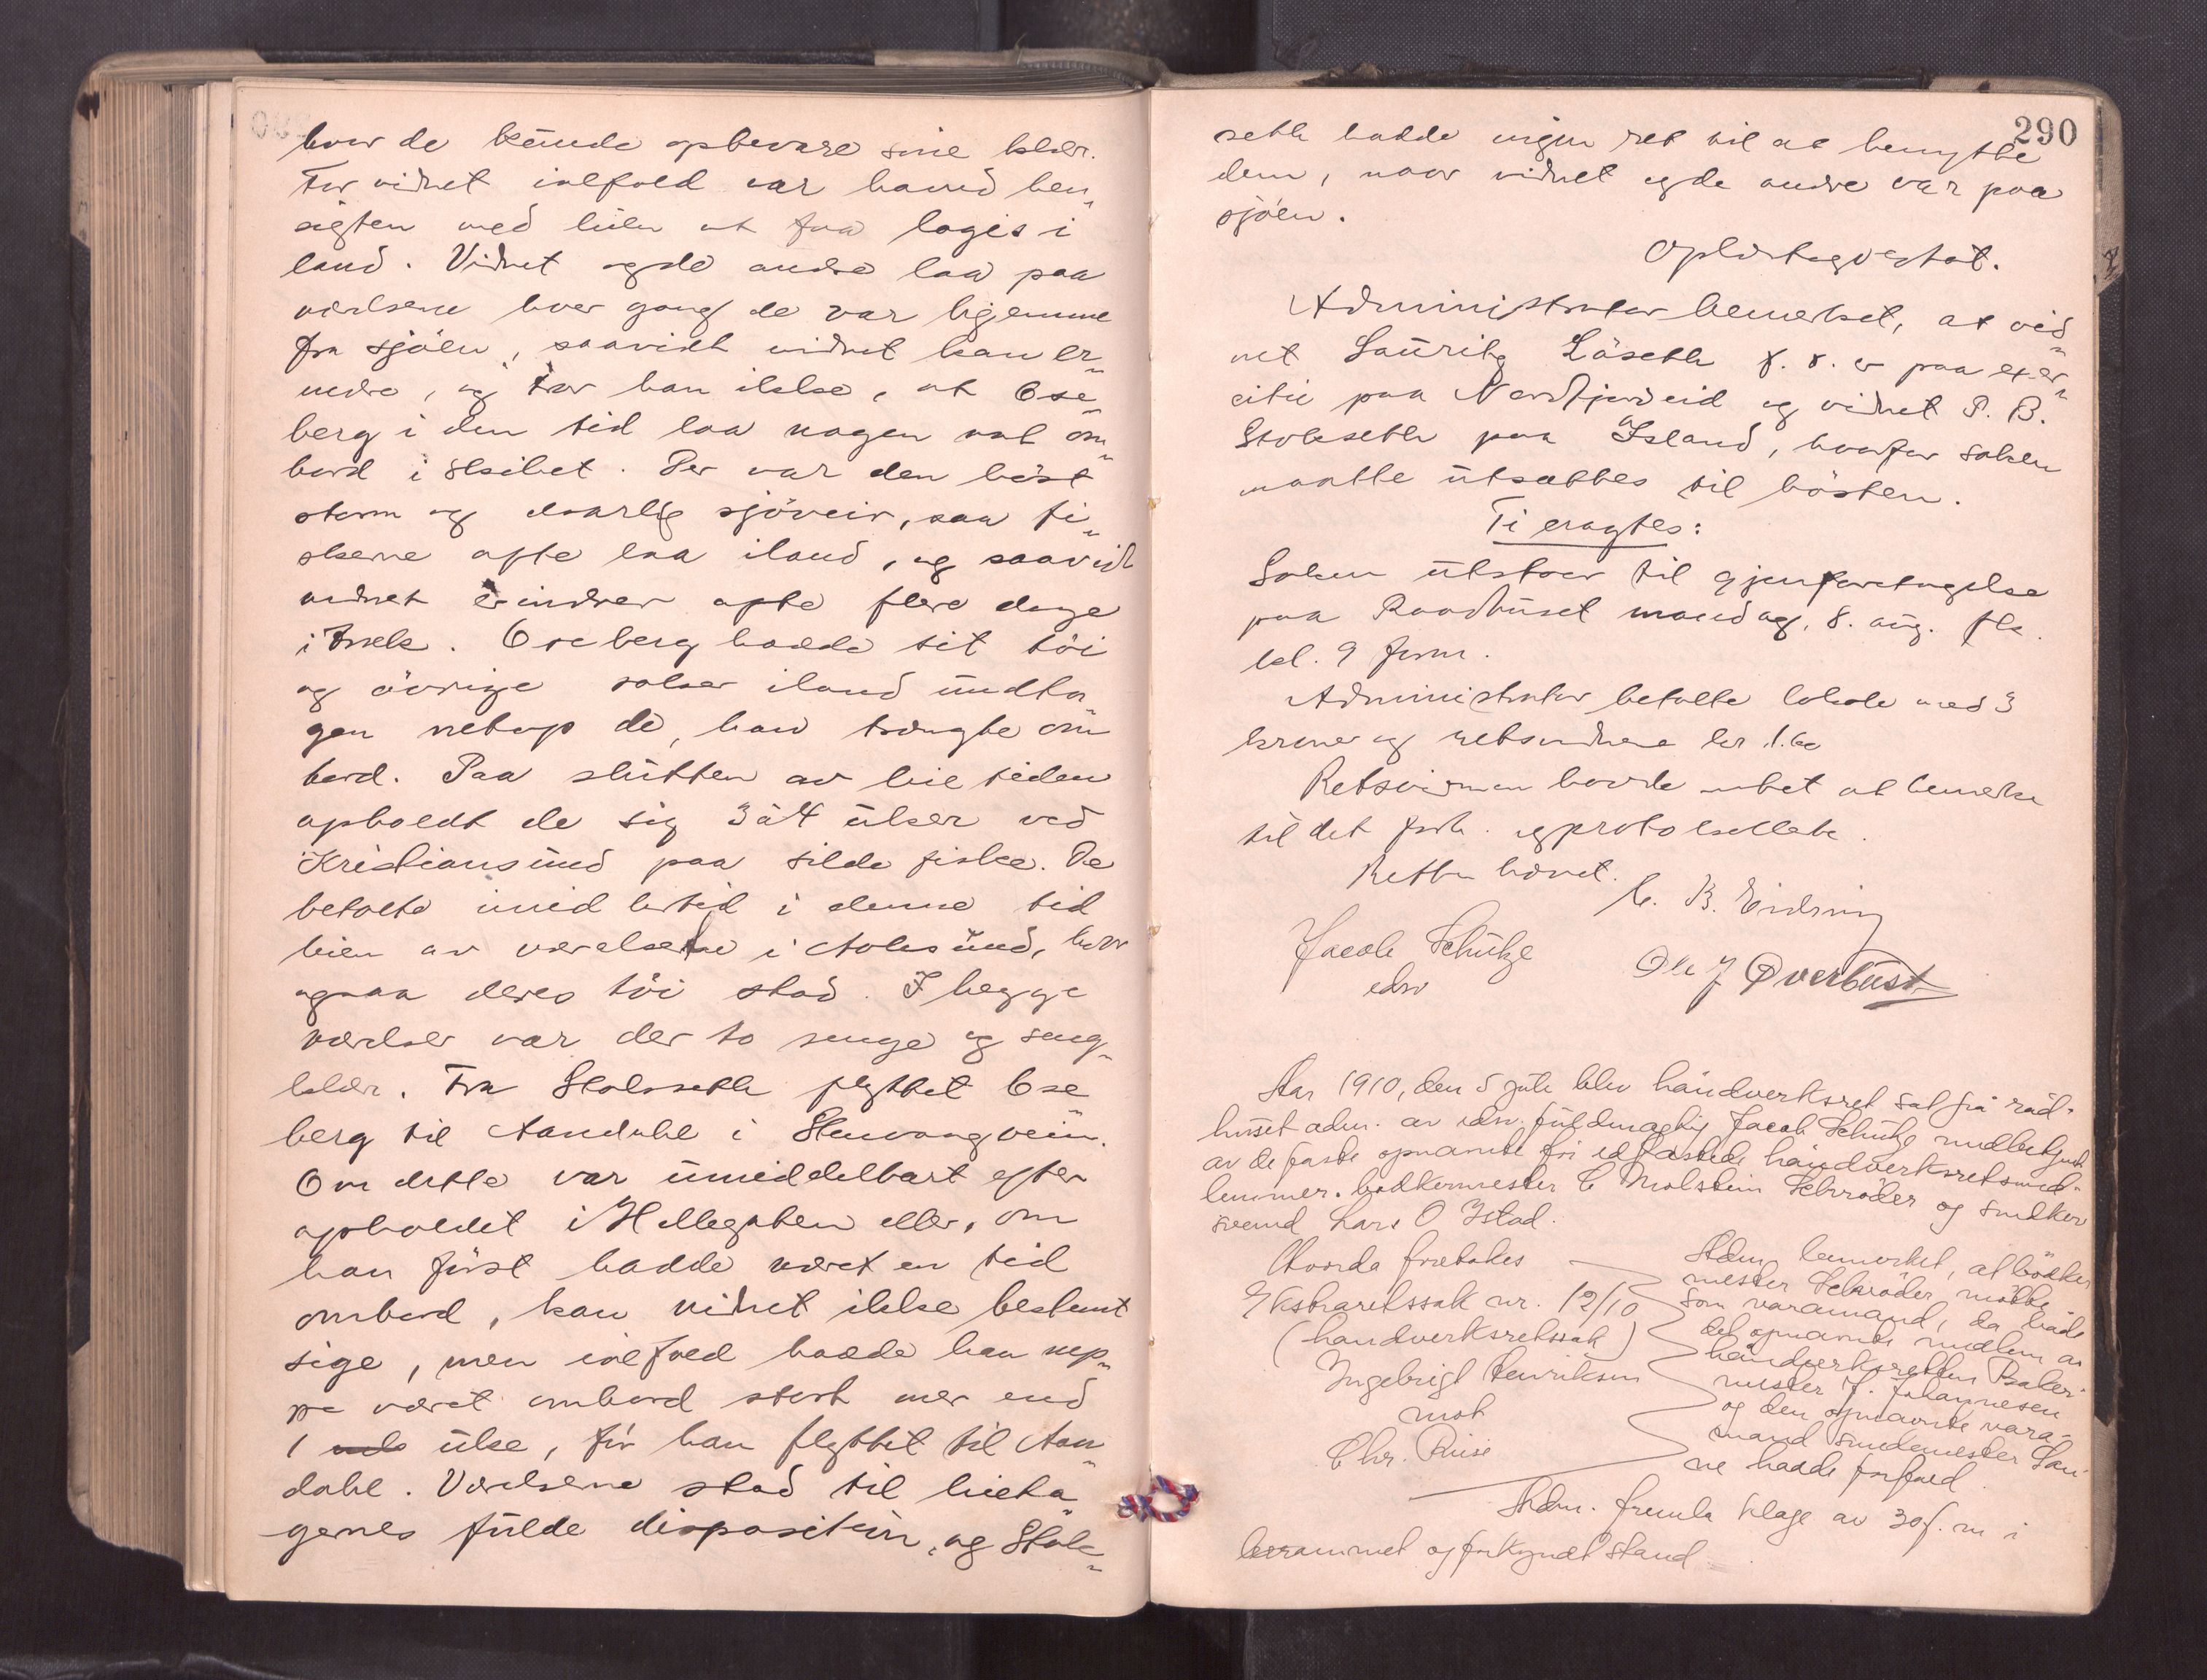 hvor de kunde opbevare sine klær.
For vidnet ialfald var hand hen-
sigten med leien at faa logis i
land. Vidnet og de andre laa paa
værelserne hver gang de var hjemme
fra sjöen, saavidt vidnet kan er-
indre, og tror han ikke, at Ose-
berg i den tid laa nogen nat om-
bord i skibet. Der var den höst
storm og daarlig sjöveir, saa fi-
skerne ofte laa iland, og saavidt
vidnet erindrer ofte flere dage
i træk. Oseberg hadde sit töi
og övrige saker iland undta-
gen netop de, han trængte om
bord. Paa slutten av leietiden
opholdt de sig 3 à 4 uker ved
Kristiansund paa sildefiske. De
betalte imidlertid i denne tid
leien av værelserne i Aalesund, hvor
ogsaa deres töi stod. I begge
værelser var der to senge og seng-
klær. Fra Stokseth flyttet Ose
berg til Aandahl i Stenvaagveien.
Om dette var umiddelbart efter
opholdet i Hellegaten eller, om
han först hadde været en tid
ombord, kan vidnet ikke bestemt
sige, men ialfald hadde han nep-
pe været ombord stort mer end
1 uke, för han flyttet til Aan-
dahl. Værelserne stod til leieta-
gernes fulde disposition, og Stok-
290
seth hadde ingen ret til at benytte
dem, naar vidnet og de andre var paa
sjöen.
Oplæst og vedtat.
Administrator bemerket, at vid-
net Lauritz Löseth f. t. er paa exer-
citie paa Nordfjordeid og vidnet P. B.
Stokseth paa Island, hvorfor saken
maatte utsættes til hösten.
Ti eragtes:
Saken utstaar til gjenforetagelse
paa Raadhuset mandag, 8. aug. fk.
kl. 9 form.
Administrator betalte lokale med 3
kroner og retsvidnene kr. 1.60
Retsvidnene havde intet at bemerke
til det forh. og protokollerte.
Retten hævet.
C. B. Eidsvig
Jacob Schütze
edsv
Ole J Överbust
Aar 1910, den 5 juli blev håndverksret sat på råd-
huset adm. av edsv. fuldmægtig Jacob Schütze med
av de faste opnævnte for edfæstede håndverksretsmed-
lemmer. bødkermester C Molstein Schrøder og snedker
svend Lars O Ystad.
Hvorda foretokes
Ekstraretssak nr. 12/10
(håndverksretssak)
Ingebrigt Henriksen
mot
Chr. Riise
Adm. bemerket, at bødker
mester Schrøder møtte
som varamand, da baade
det opnævnte medlem av
håndverksretten Baker-
mester J. Johannesen
og den opnævnte vara-
mand smedemester San-
ne hadde forfald.
Adm. fremla klage av 30 f. m i
berammet og forkyndt stand